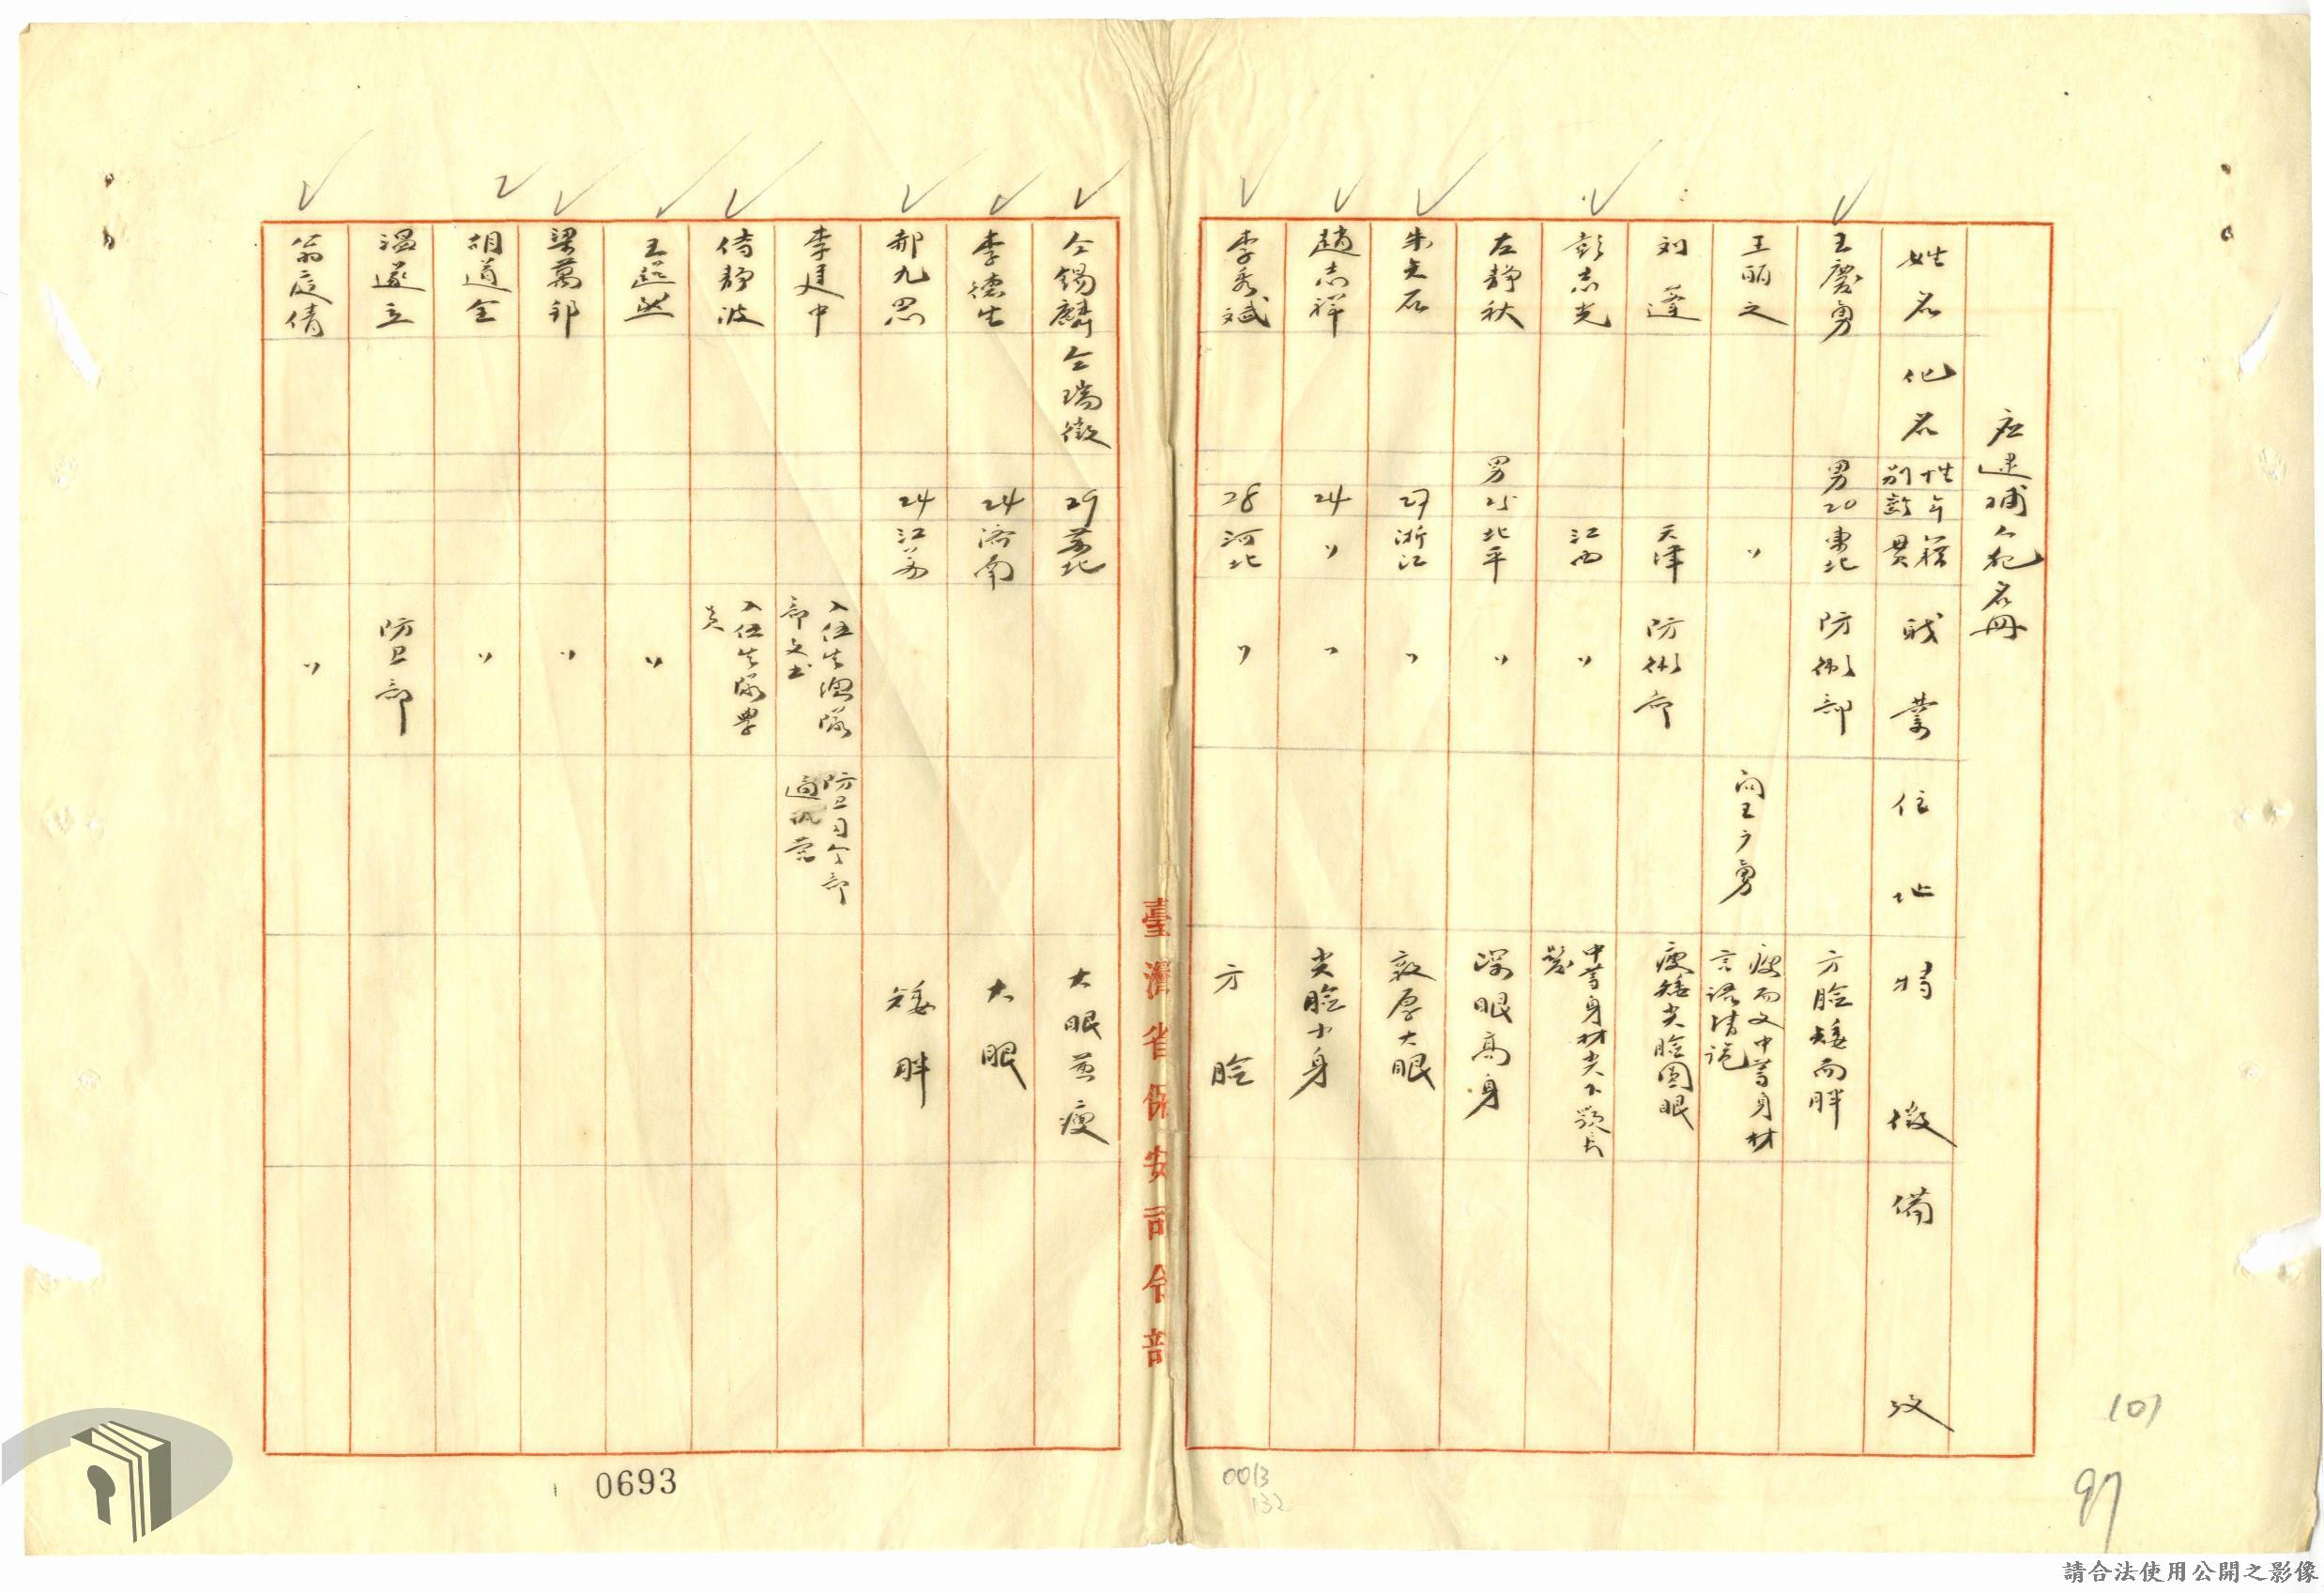 應逮捕人犯名冊
姓名 化名 性別 年齡 籍貫 職業 住址 特徵 備攷
王慶勇 男 20 東北 防衛部 方臉矮而胖
王丽之 〃 向王广勇 瘦而文中等身材
刘蓬 天津 防衛部 瘦矮尖臉圓眼
彭志光 江西 〃 中等身材尖下顎長髮
左靜秋 男 25 北平 〃 深眼高身
朱文石 27 浙江 〃 敦厚大眼
趙志祥 24 〃 〃 尖臉小身
李秀斌 28 河北 〃 方臉
臺灣省保安司令部
仝錫麟 仝瑞徵 29 苏北 大眼並瘦
李德生 24 濟南 大眼
郝九思 24 江苏 矮胖
李建中 入伍生總隊部文书 防卫司令部通訊營
倚靜波 入伍生隊學員
王延〃
梁萬邦 〃
胡道全 〃
溫遂立 防卫部
翁庭倩 〃
0693
0013
132
101
97
請合法使用公開之影像